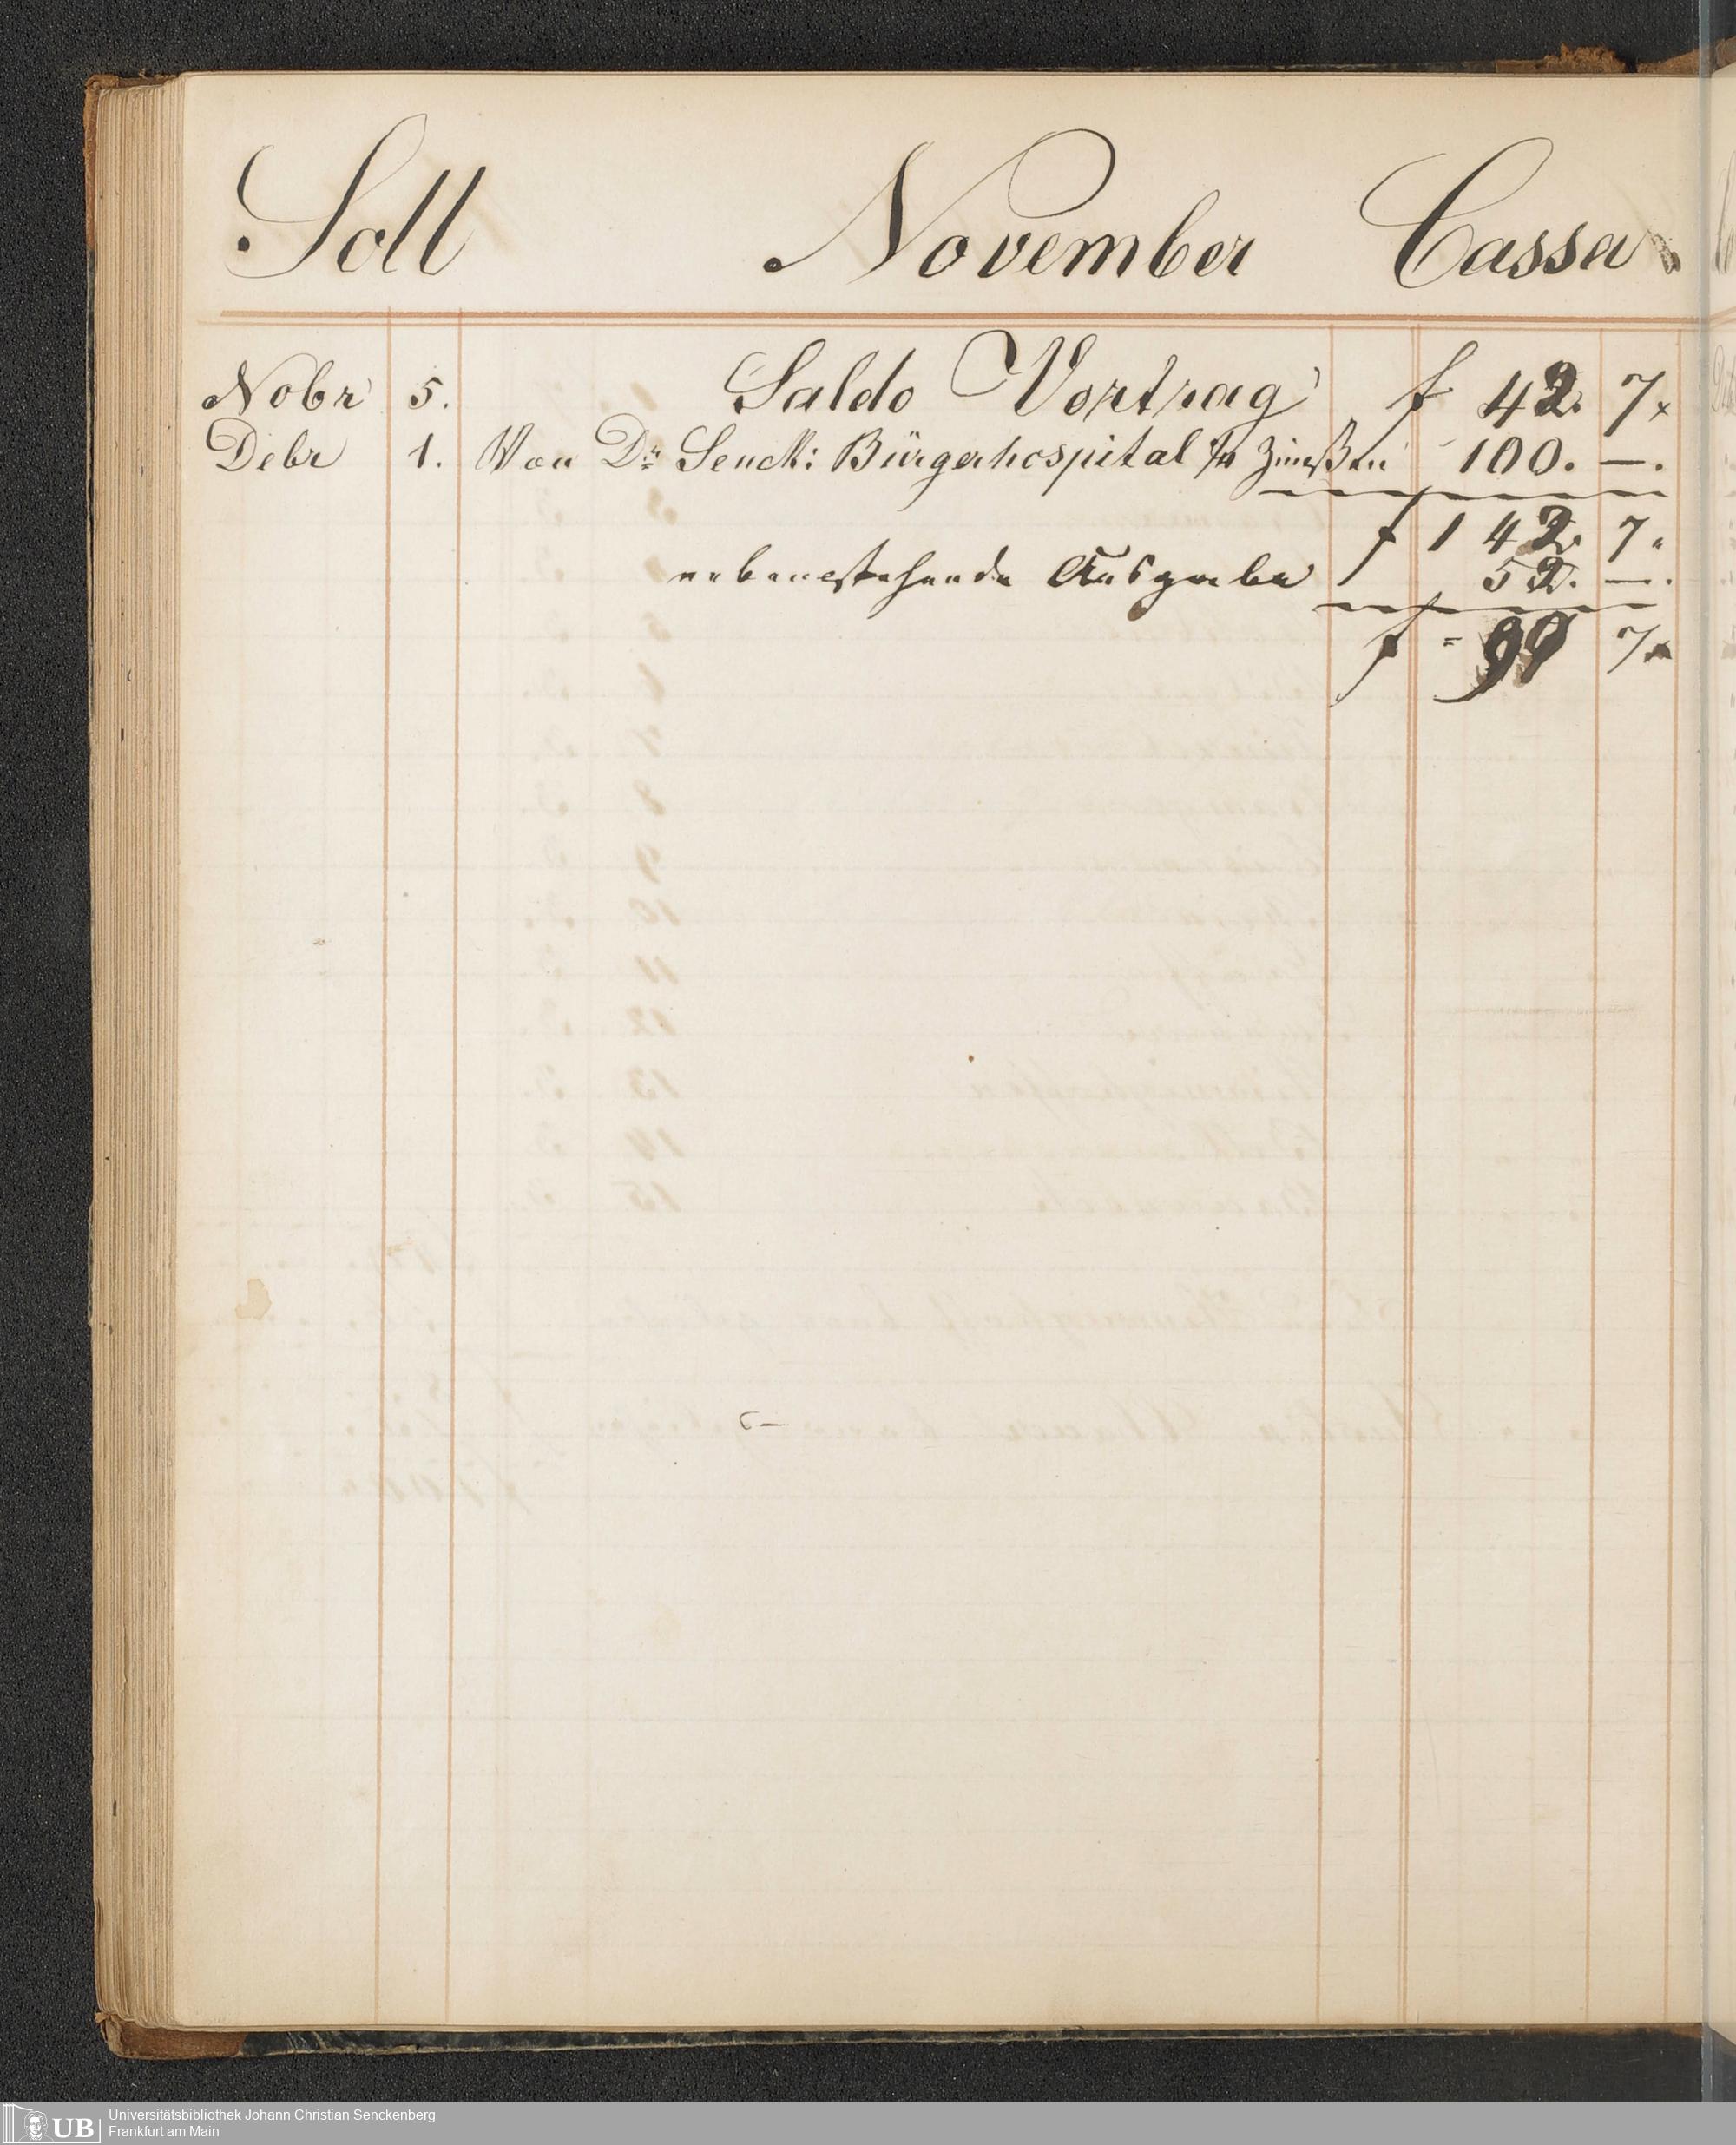 Soll November Cassa
Nobr 5. Saldo Vortrag f 42. 7x
Debr 1. Von Dr Senck: Bürgerhospital Zinßen 100. —.
f 142. 7"
nebenstehende Ausgabe f 52. —.
f = 90 7x
Universitätsbibliothek Johann Christian Senckenberg
Frankfurt am Main
UB